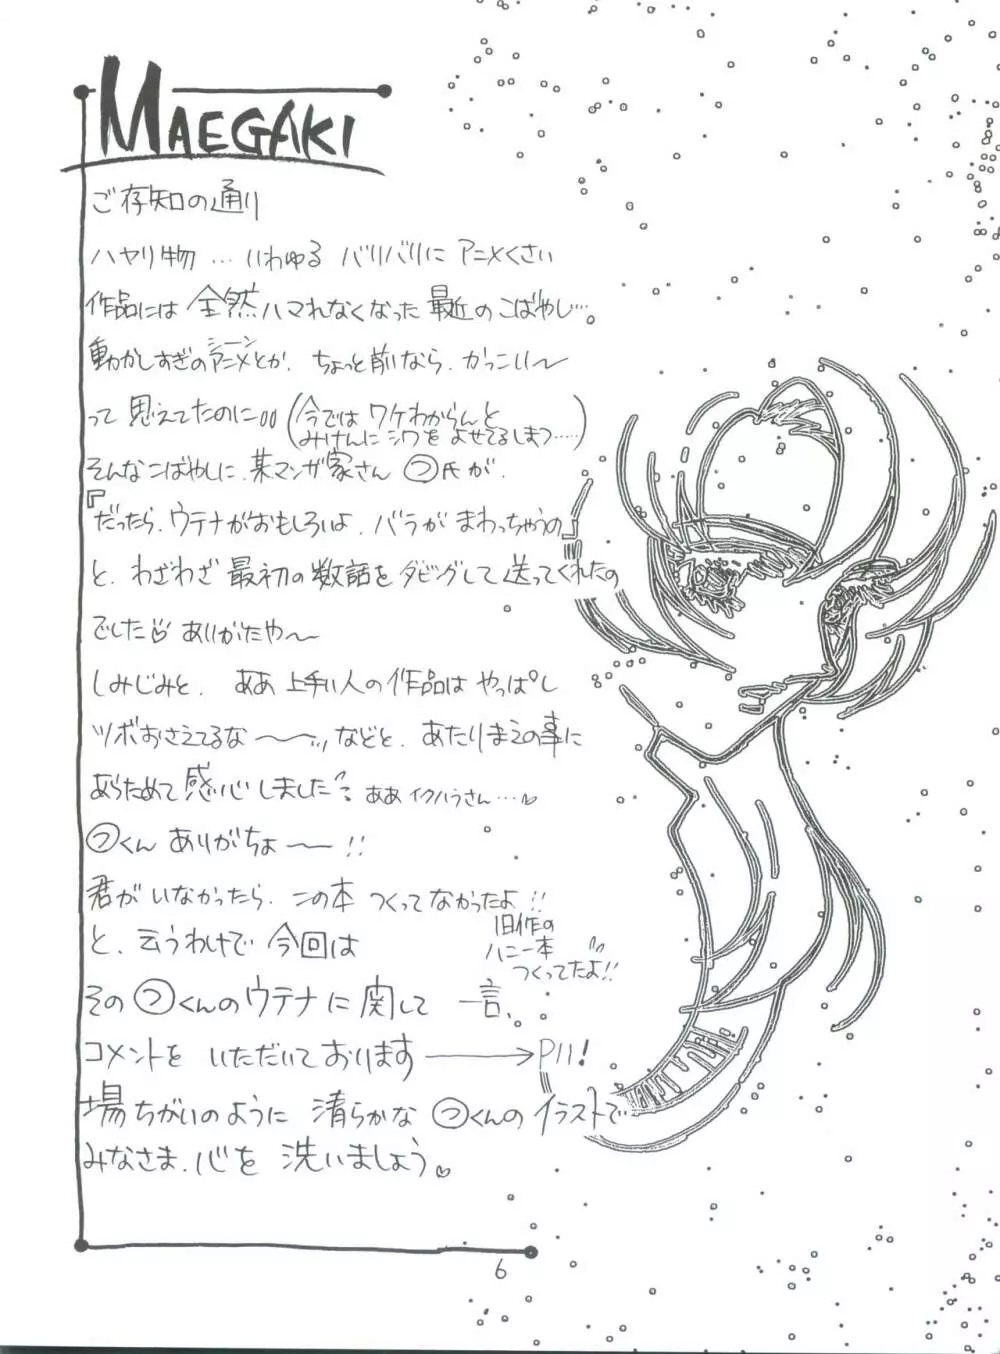 MAEGAKI
ご存知の通り
ハヤリ物…いわゆる バリバリに アニメくさい
作品には 全然ハマれなくなった 最近のこばやし…
動かしすぎのアニメとか、ちょっと前なら、かっこいい〜
シーン
って 思えてたのに
(今では ワケわからんと
みけんに シワを よせてるしまつ……)
そんなこばやしに、某マンガ家さん つ氏が、
『だったら、ウテナがおもしろいよ、バラが まわっちゃうの』
と、わざわざ 最初の数話を ダビングして送ってくれたの
でした♡ ありがたや〜
しみじみと、ああ 上手い人の作品は やっぱし
ツボおさえてるな〜〜… などと、あたりまえの事に
あらためて感心しました ああ イクハラさん…♡
つくん ありがちょ〜!!
君が いなかったら、この本 つくってなかったよ!!
旧作の
ハニー本
つくってたよ!!
と、云うわけで 今回は
その つくんのウテナに 関して 一言、
コメントを いただいております → P11!
場ちがいのように 清らかな つくんの イラストで
みなさま、心を 洗いましょう。♡
6